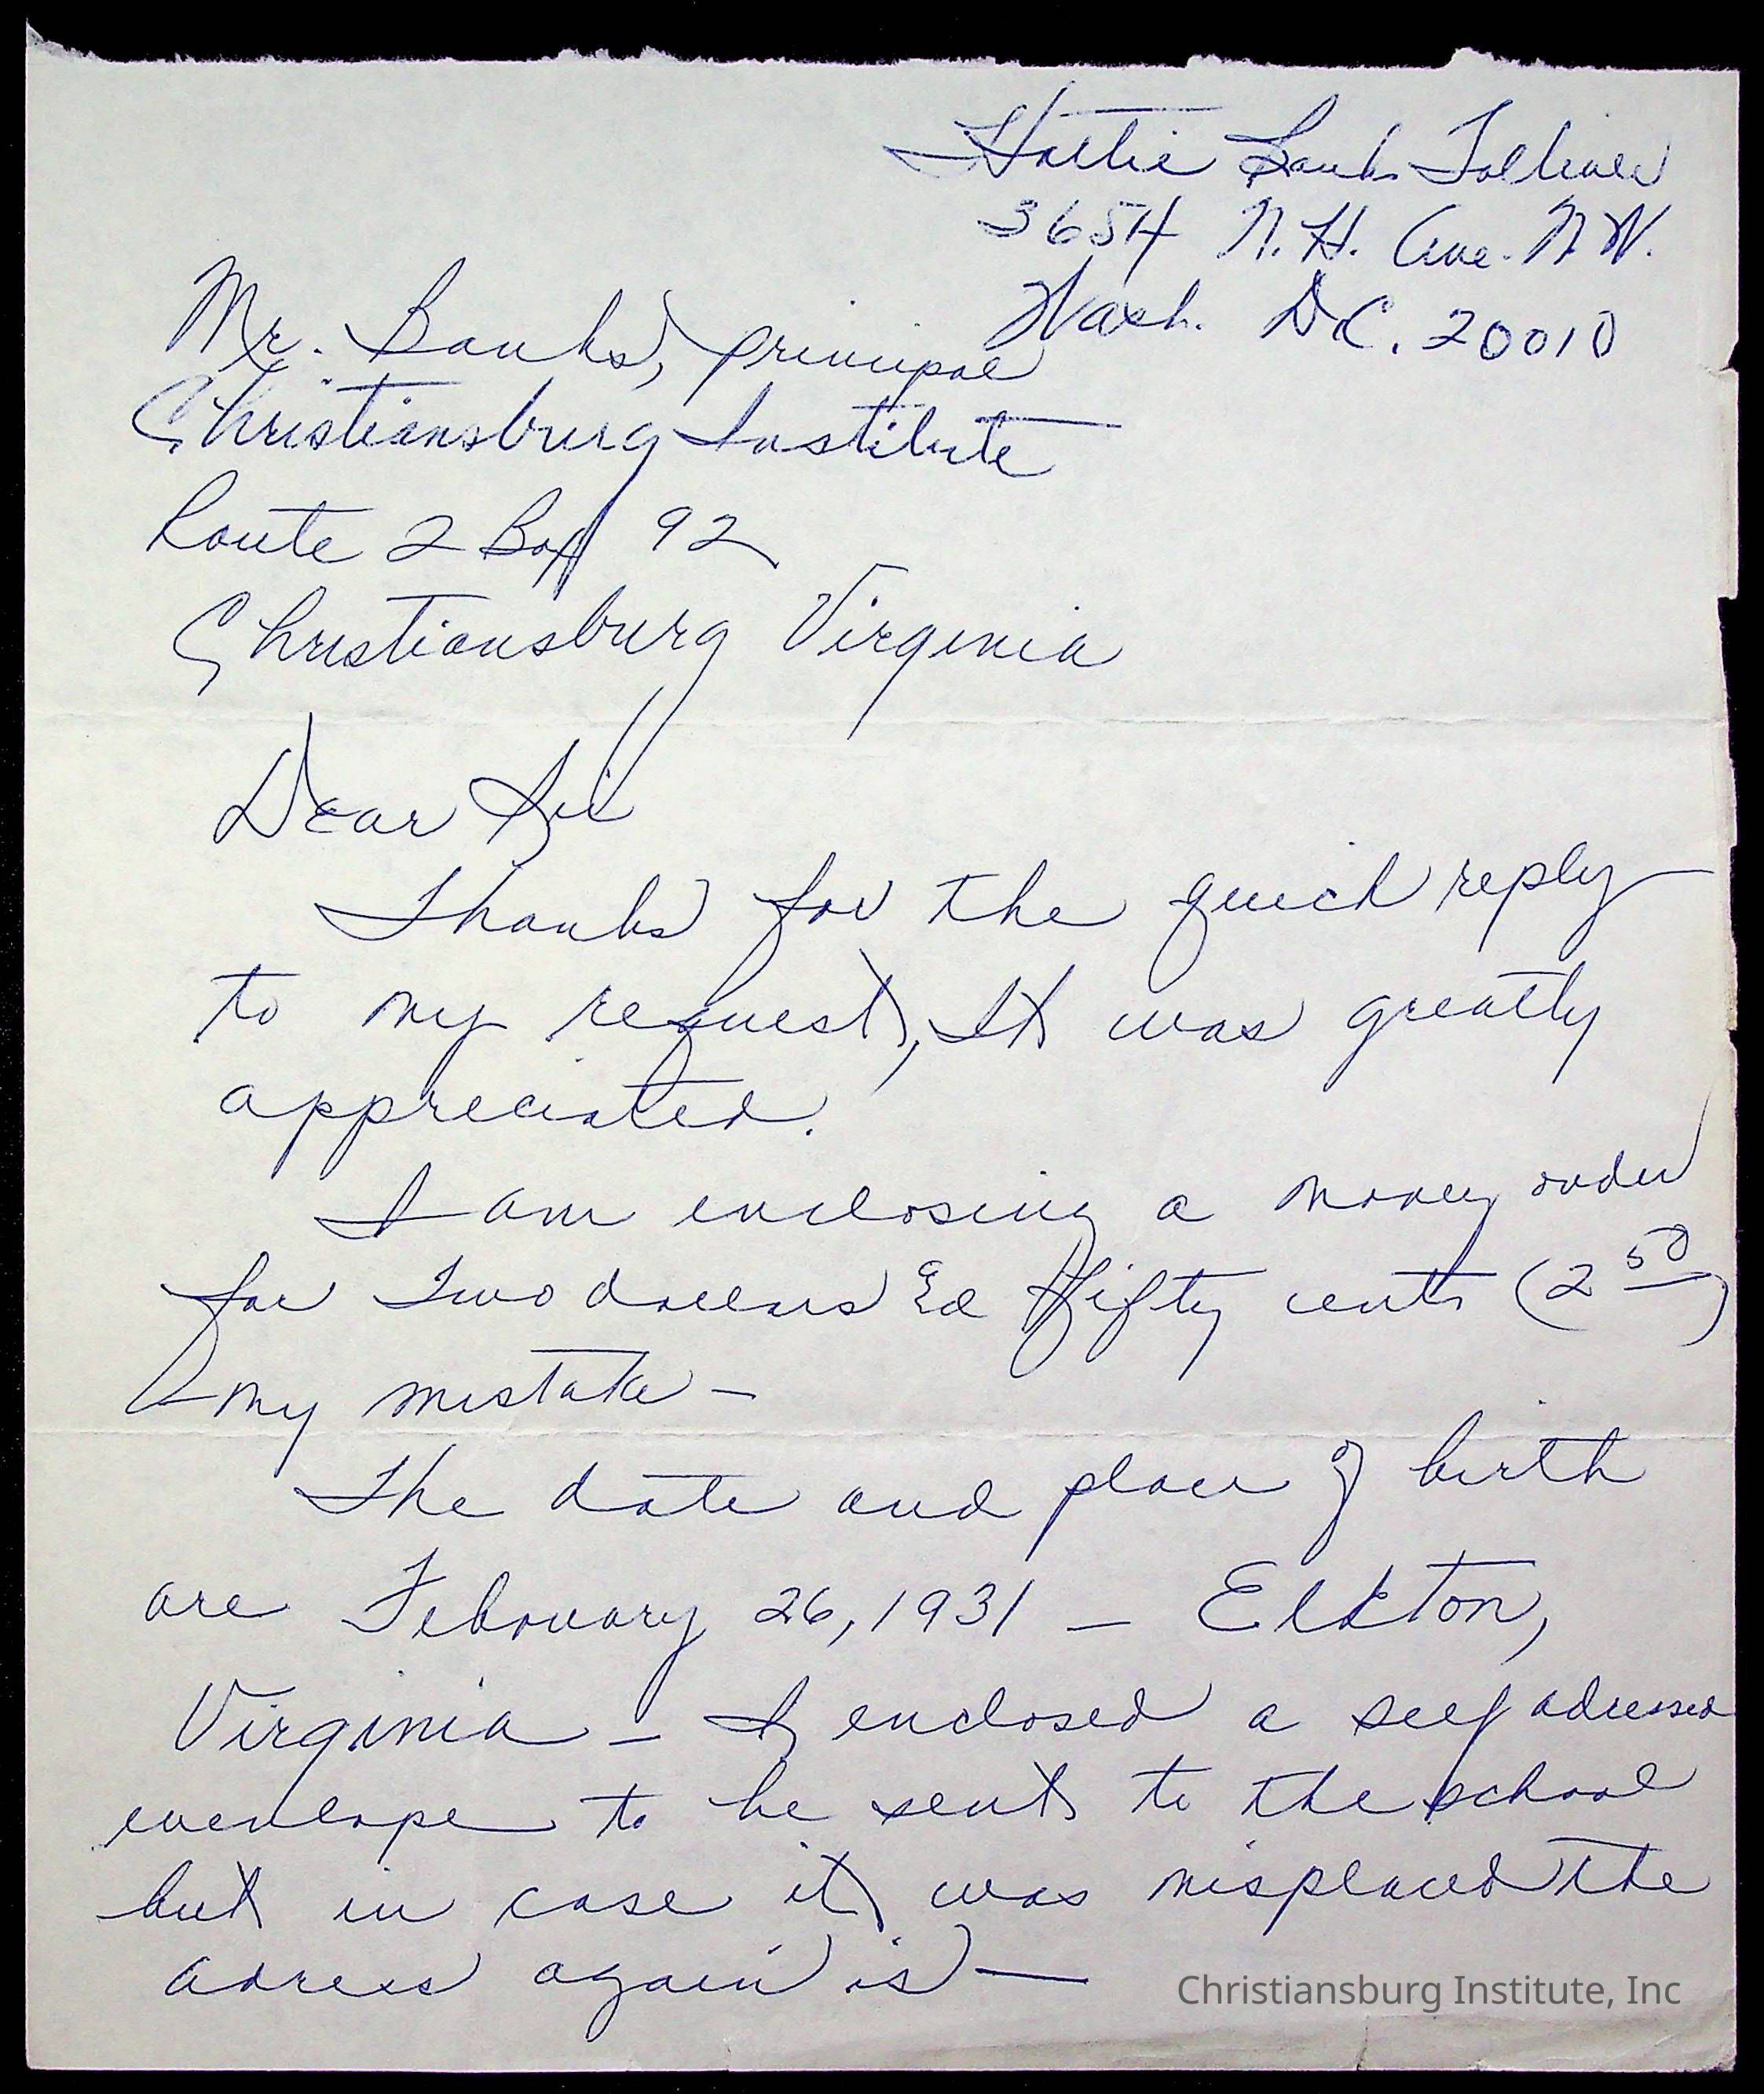 Hattie Banks Tolliver
3654 N.H. Ave. N.W.
Wash. D.C. 20010
Mr. Banks, principal
Christiansburg Institute
Route 2 Box 92
Christiansburg Virginia
Dear Sir
Thanks for the quick reply
to my request, It was greatly
appreciated.
I am enclosing a money order
for two dollars & fifty cents (2 50)
my mistake -
The date and place of birth
are February 26, 1931 - Elkton,
Virginia - I enclosed a self adressed
envelope to be sent to the school
but in case it was misplaced the
adress again is —
Christiansburg Institute, Inc